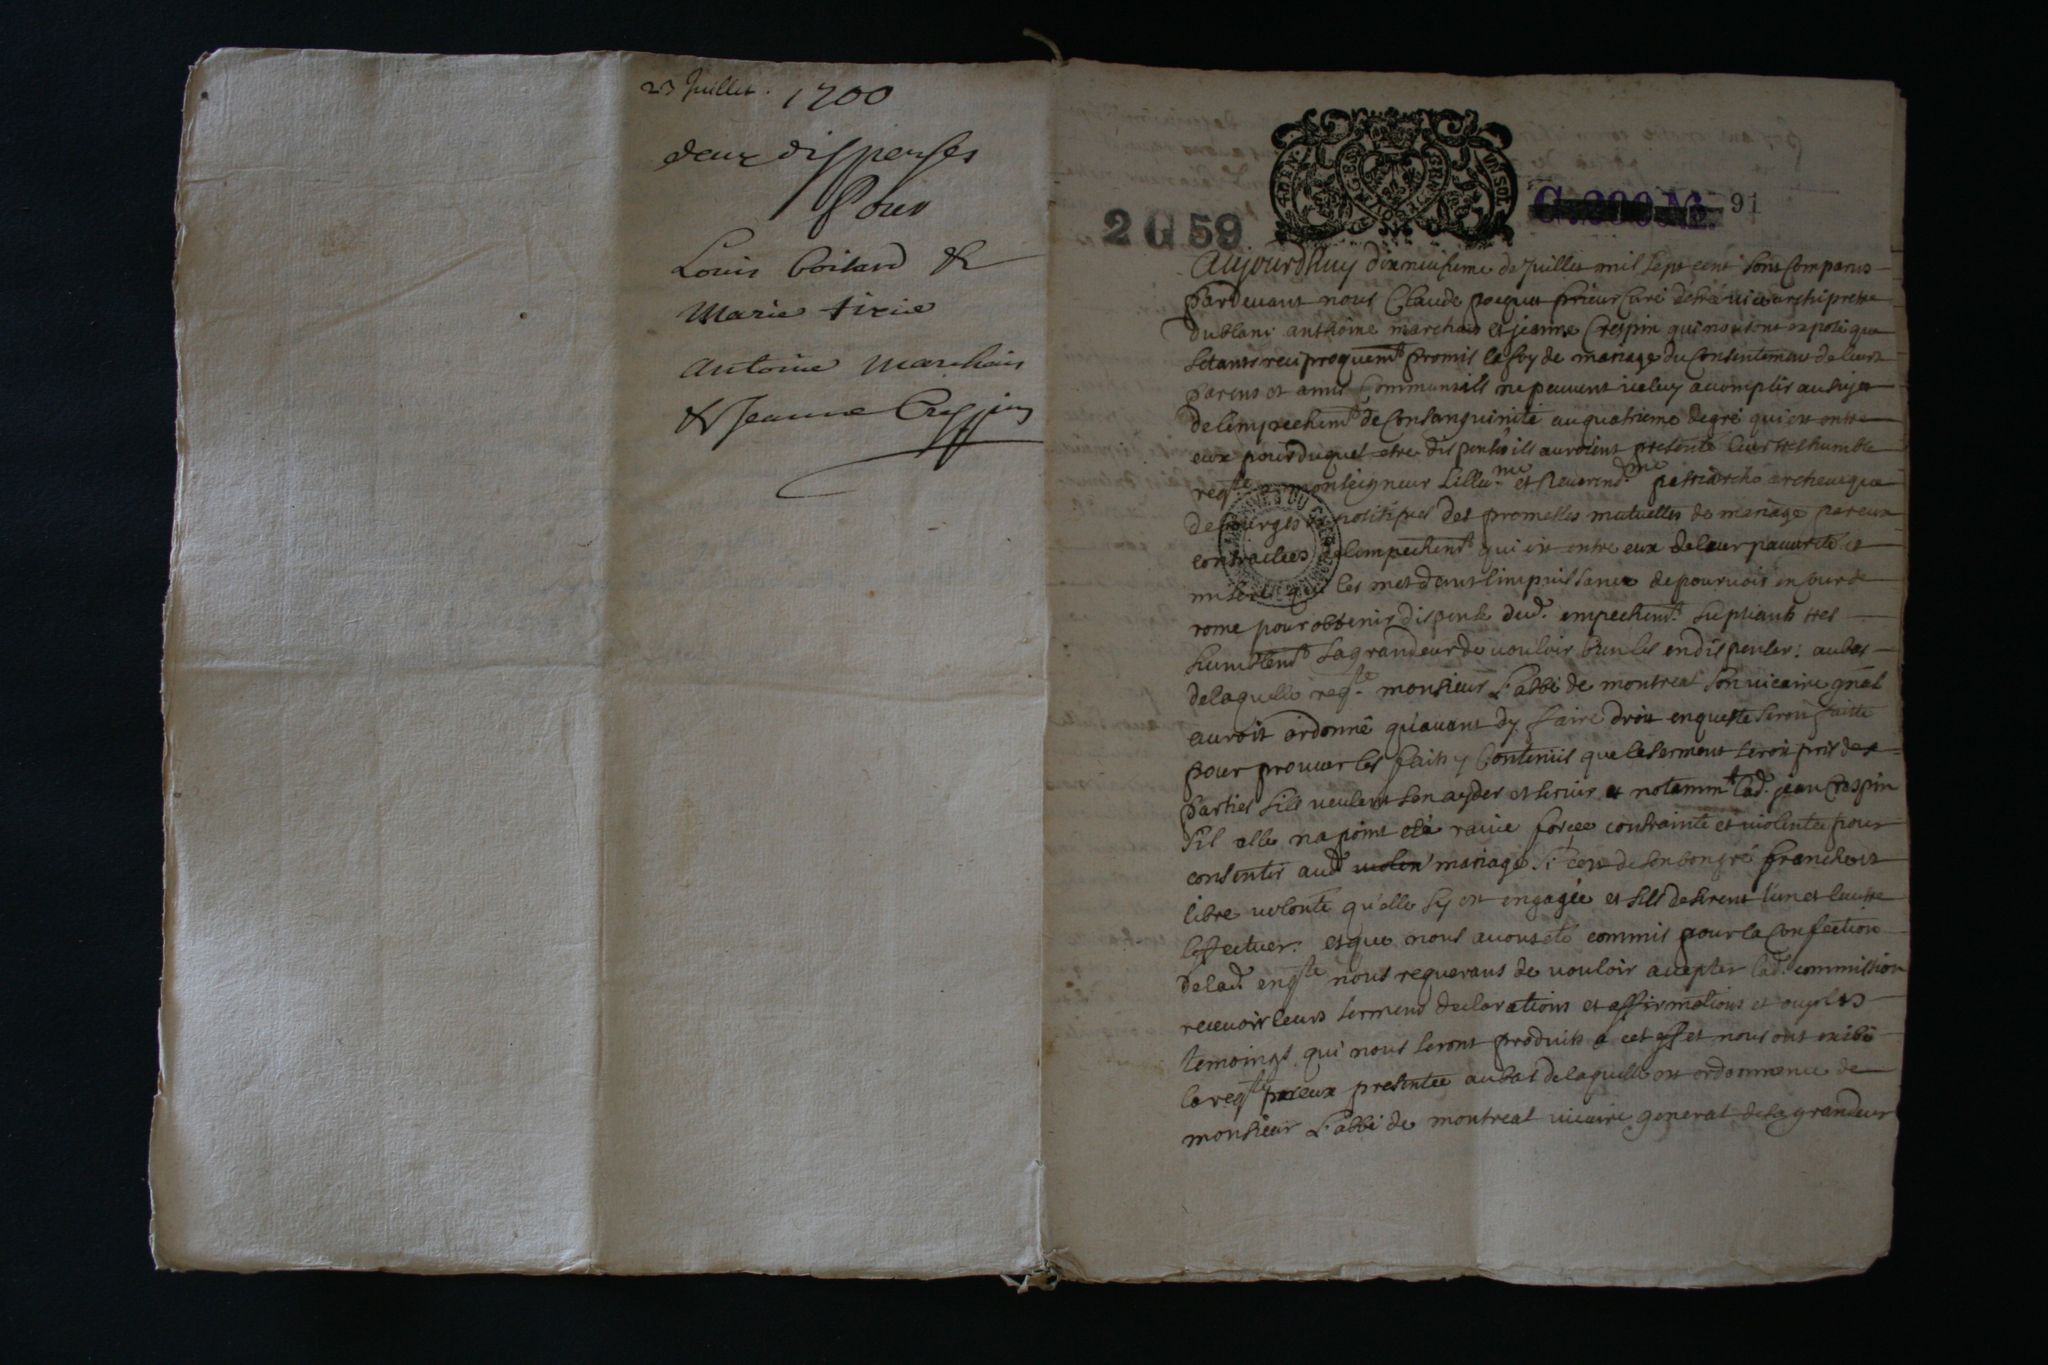 23 Juillet. 1700
deux dispenses
Pour
Louis Coitard &
Marie tixie
Antoine Marchais
& Jeanne Crespin
GEN
IN SOL
2 G 59
G. 200 M. 91
Aujourdhuy dixneufieme de Juillet mil sept cent sont Comparus
pardevant nous Claude poquet prieur Curé vicearchipretre
du blanc anthoine marchais et jeanne Crespin qui nous ont exposé que
setants reciproquemt promis la foy de mariage du Consentement de leurs
parens et amis Communs ils ne peuvent iceluy accomplir au sujet
de lempeschemt de Consanguinité au quatrieme degré qui est entre
eux pour duquel etre dispensés ils auroient presenté leur tres humble
reqte a monseigneur Lillume et Reverendme patriarche archeveque
de bourges expositive des promesses mutuelles de mariage par eux
contractées de lempechemt qui est entre eux de leur pauvreté et
misere qui les met dans limpuissance de pourvoir en cour de
rome pour obtenir dispense dud. empechemt. supliants tres
humblemt sa grandeur de vouloir bien les en dispenser: au bas
de laquelle reqte. monsieur L'abbé de montreal son vicaire gnal
auroit ordonné qu'avant dy faire droit enqueste seroit faitte
pour prouver les faits y Contenus que le serment seroit pris des
parties sils veulent sen ayder et servir et notammt lad. jean Crespin
sil elle na point eté ravie forcee contrainte et violentée pour
consentir aud violen mariage. si cest de son bon gré franche et
libre volonté qu'elle sy est engagée et sils desirent l'un et lautre
leffectuer: et que nous avons eté commis pour la Confection
de lad. enqte nous requerans de vouloir accepter lad. commission
recevoir leurs sermens declarations et affirmations et ouyr les
temoings qui nous seront produits a cet effet nous ont exibé
la reqte par eux presentée au bas de laquelle est ordonnance de
monsieur L'abbé de montreal vicaire general de sa grandeur